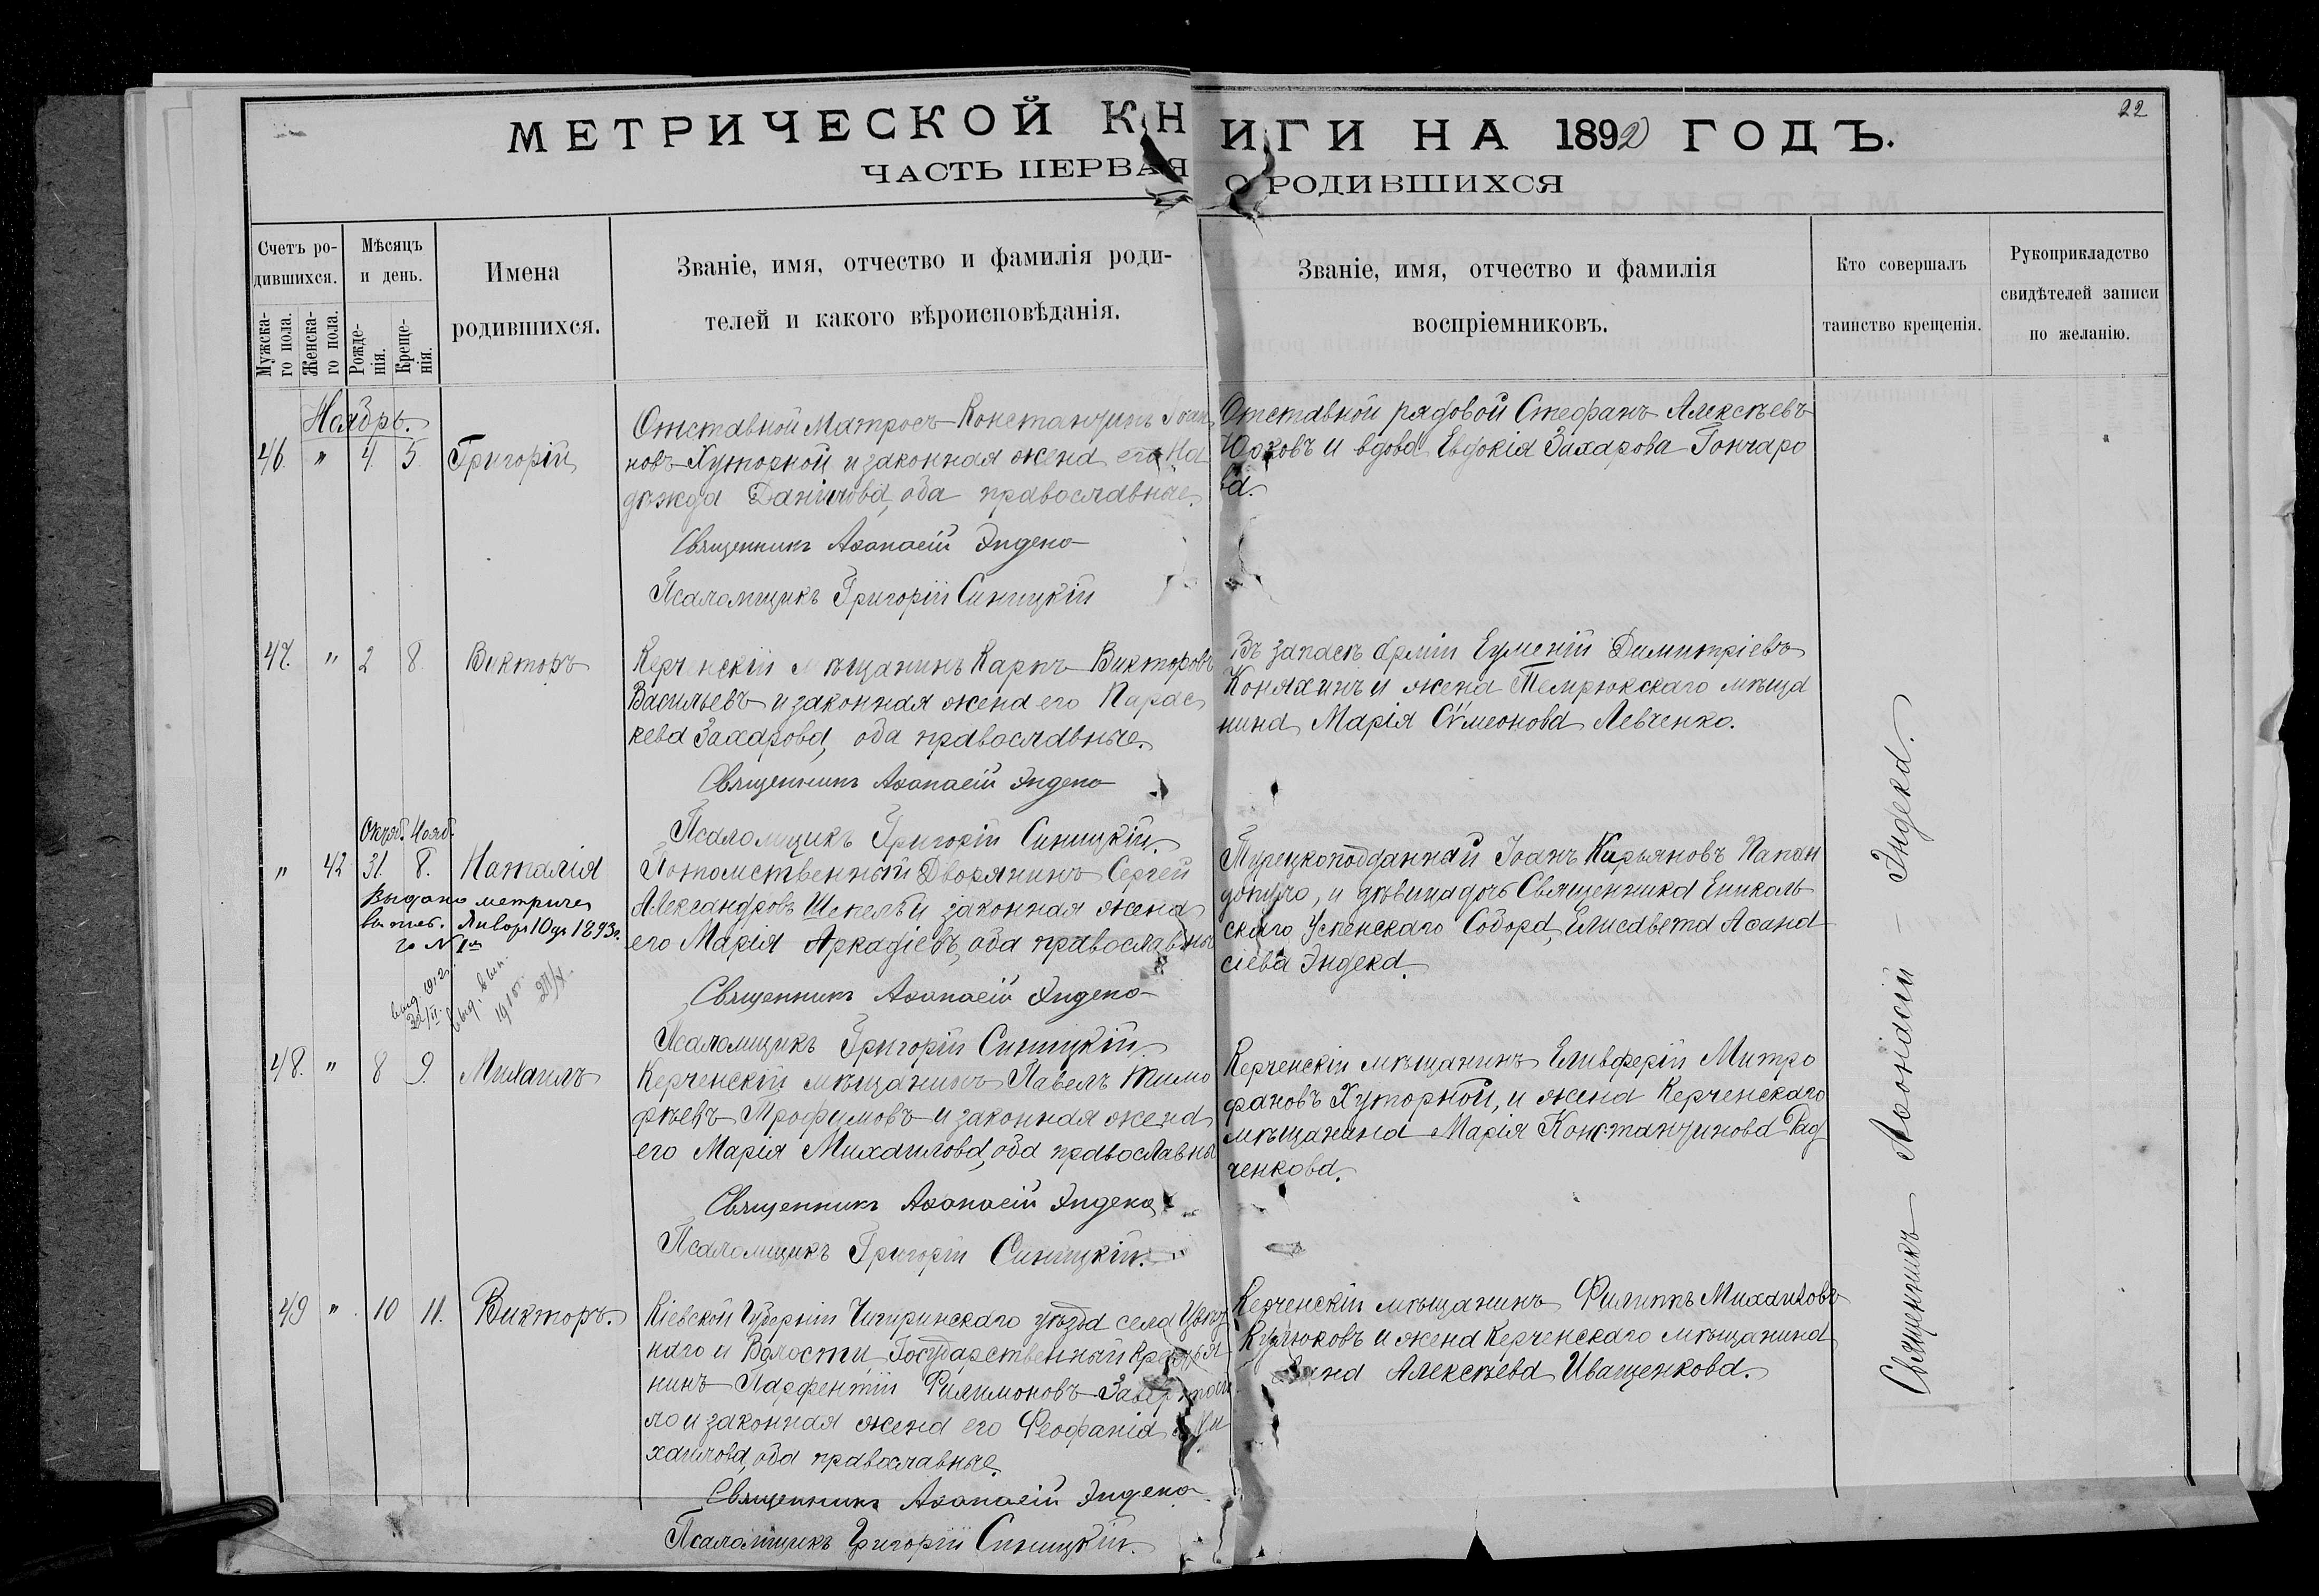 22
МЕТРИЧЕСКОЙ КНИГИ НА 1892 ГОДЪ.
ЧАСТЬ ПЕРВАЯ О РОДИВШИХСЯ
Счетъ ро-
дившихся.
Мужска-
го пола.
Женска-
го пола.
Мѣсяцъ
и день.
Рожде-
нія.
Креще-
нія.
Имена
родившихся.
Званіе, имя, отчество и фамилія роди-
телей и какого вѣроисповѣданія.
Званіе, имя, отчество и фамилія
воспріемниковъ.
Кто совершалъ
таинство крещенія.
Рукоприкладство
свидѣтелей записи
по желанію.
Ноябрь.
46. " 4. 5. Григорій
Отставной Матросъ Константинъ Іоан
новъ Хуторной и законная жена его На
дѣжда Данилова, оба православные.
Священникъ Аѳанасій Эндека
Псаломщикъ Григорій Синицкій
Отставной рядовой Стефанъ Алексѣевъ
и вдова Евдокія Захарова Гончаро
ва.
47. " 2 8. Викторъ
Керченскій мѣщанинъ Карпъ Викторовъ
Васильевъ и законная жена его Парас
кева Захарова, оба православные.
Священникъ Аѳанасій Эндека
Псаломщикъ Григорій Синицкій.
Въ запасѣ арміи Евменій Димитріевъ
Коняхинъ и жена Темрюкскаго мѣща
нина Марія Сѵмеонова Левченко.
Октяб. Нояб.
" 42 31. 8. Наталія
Выдано метриче
Январ 10 дн 1893 г.
за № 1м
выд. 1912 г.
выд. вып.
Потомственный Дворянинъ Сергей
Александровъ Шепель и законная жена
его Марія Аркадіевъ, оба православны
Священникъ Аѳанасій Эндека
Псаломщикъ Григорій Синицкій.
Турецкоподданный Іоанъ Кирьяновъ Папан
допуло, и дѣвица дочь Священника Еникаль
скаго Успенскаго Собора, Елисавета Аѳана
сіева Эндека.
48. " 8 9. Михаилъ
Керченскій мѣщанинъ Павелъ Тимо
фѣевъ Трофимовъ и законная жена
его Марія Михаилова, оба православны
Священникъ Аѳанасій Эндека
Псаломщикъ Григорій Синицкій.
Керченскій мѣщанинъ Елевферій Митро
фановъ Хуторной, и жена Керченскаго
мѣщанина Марія Константинова Рад
ченкова.
49 " 10 11. Викторъ.
Кіевской Губерніи Чигиринскаго уѣзда села
наго и Волости Государственный крестья
нинъ Парфентій Филимоновъ
ло и законная жена его Феофанія Ми
хаилова, оба православные.
Священникъ Аѳанасій Эндека
Псаломщикъ Григорій Синицкій.
Керченскій мѣщанинъ Филиппъ Михаиловъ
Курлюковъ и жена Керченскаго мѣщанина
Алексѣева Иващенкова.
Священникъ Аѳанасій - Эндека.